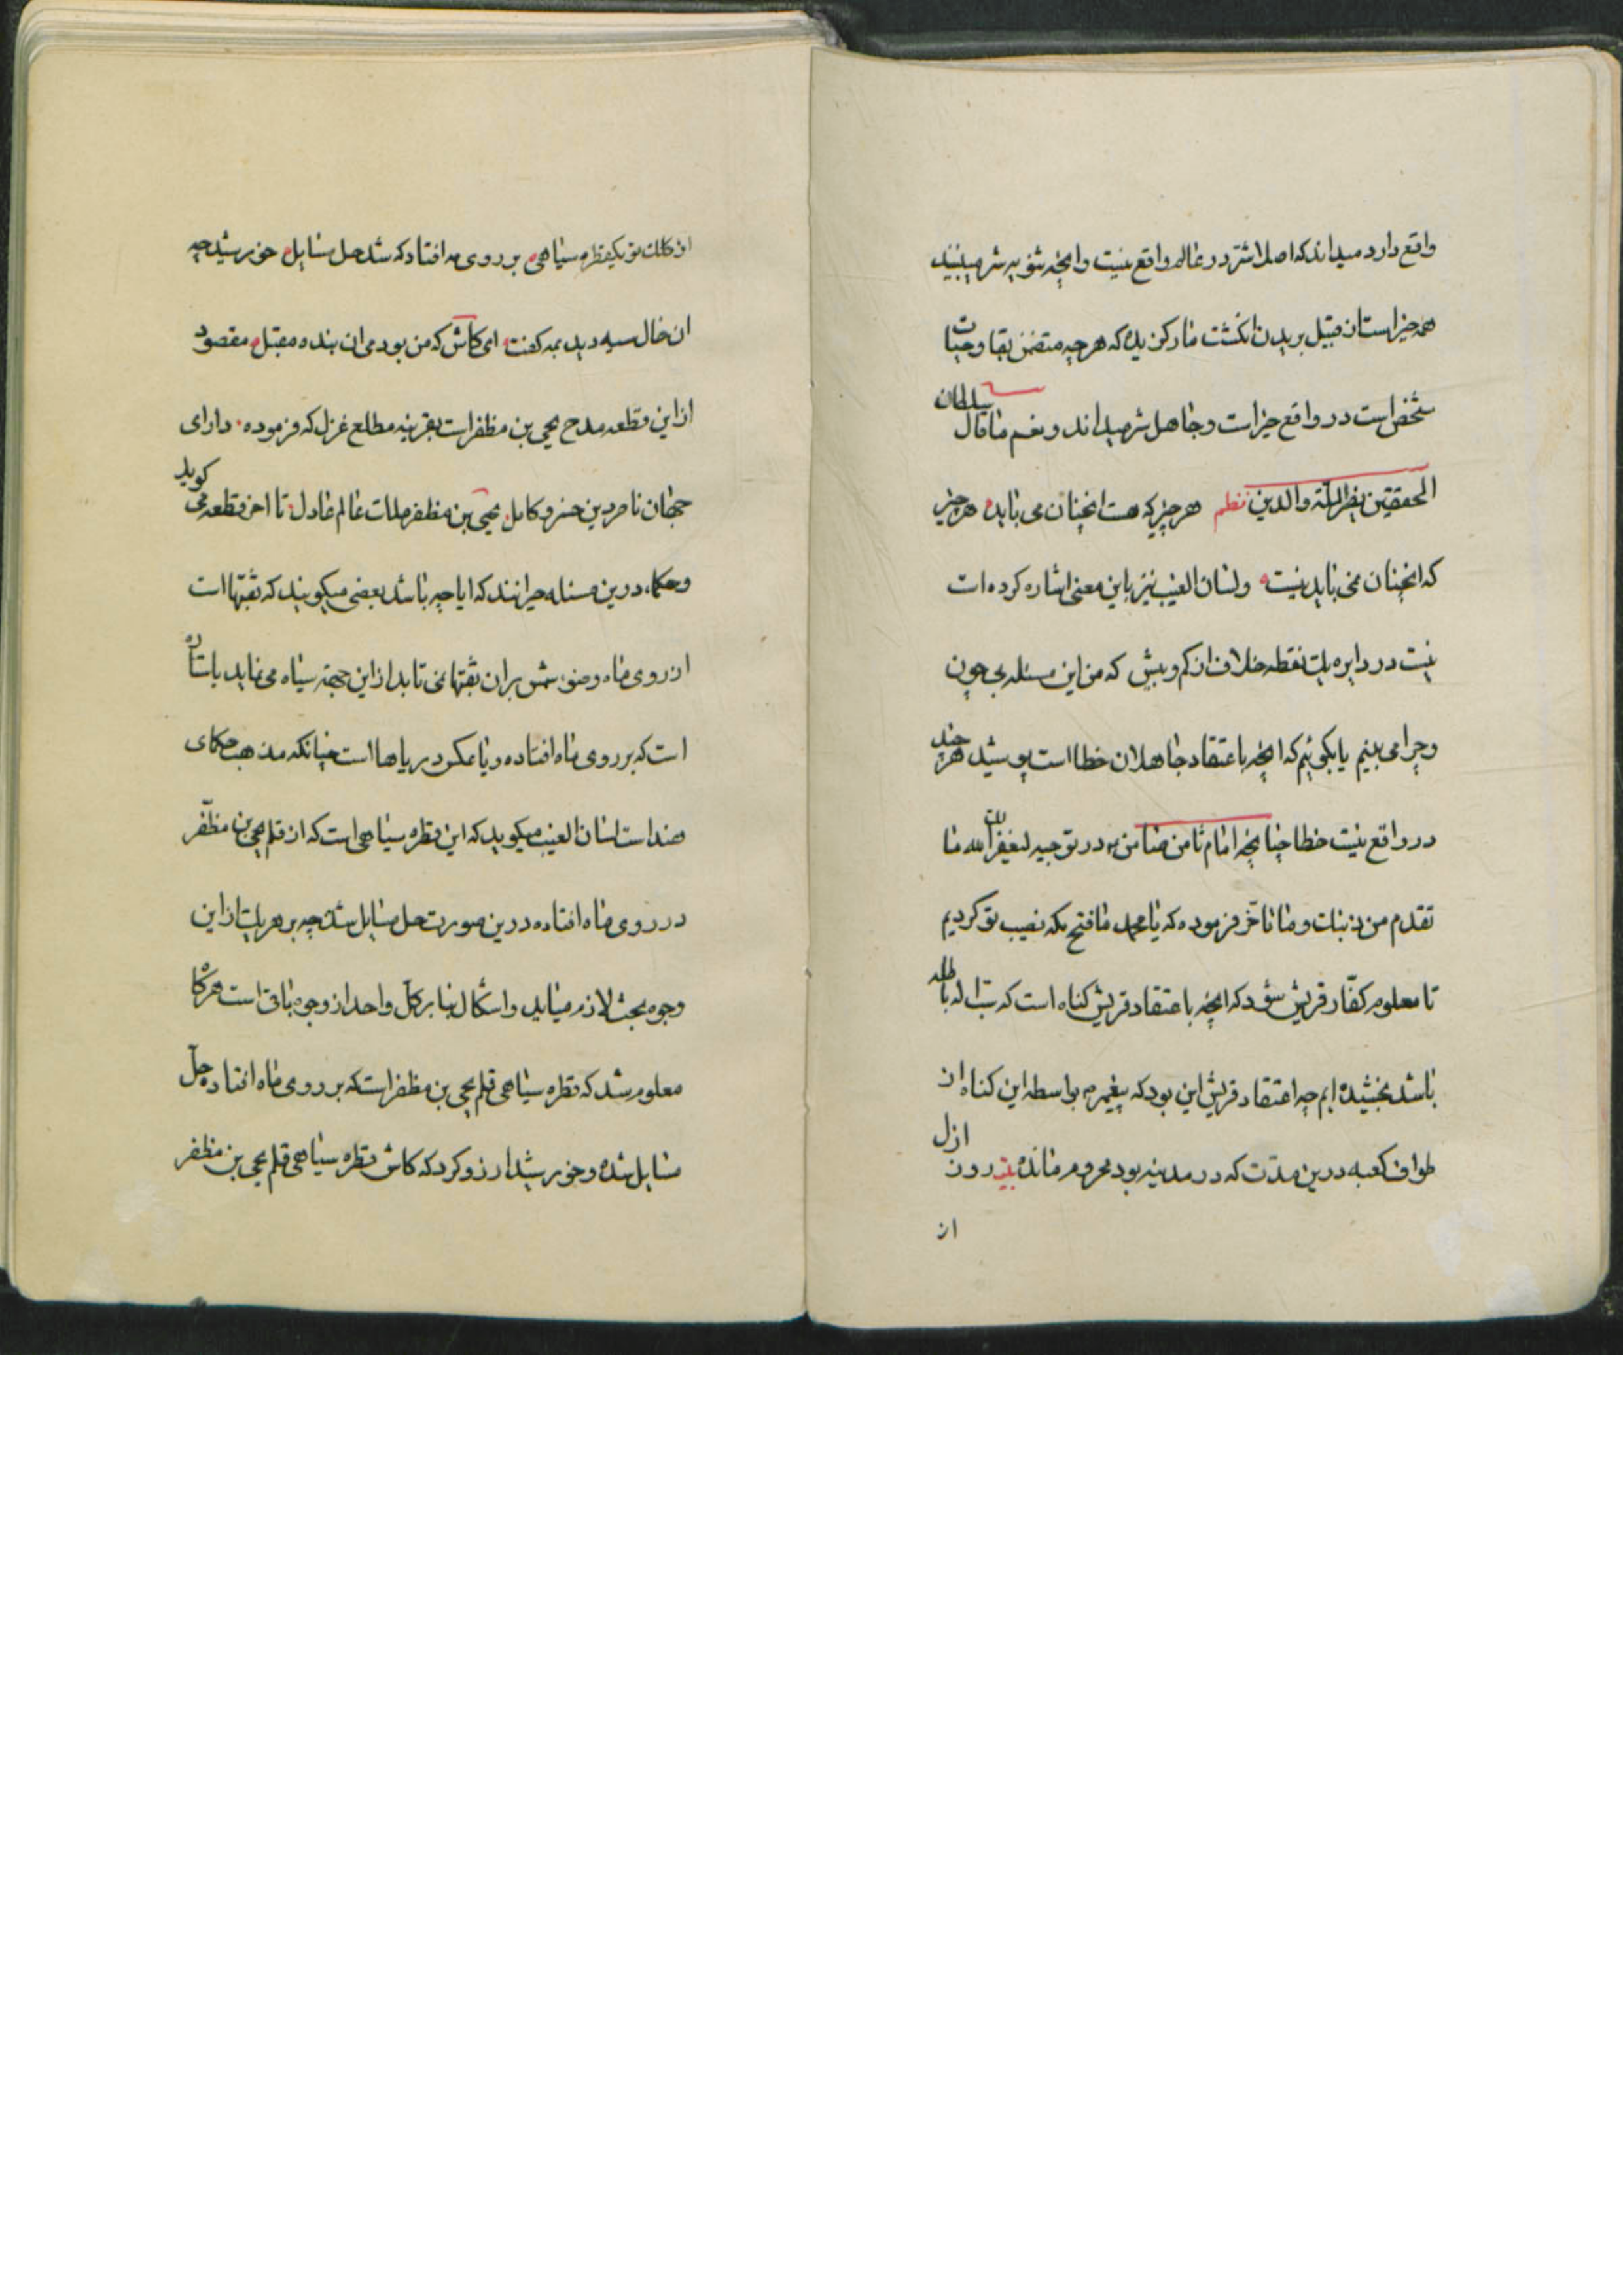 واقع دارد میداند که اصلا شر در عالم واقع نیست وانچه شوبه شر میبینند
همه خیر است از قبیل بریدن انکشت مار کزیده که هر چه متضمن بقا وحیات
شخص است در واقع خیر است وجاهل شر میداند ونعم ما قال سلطان
المحققین نصر الملة والدین نظم هر چیز که هست انچنان می باید هر چیز
که انچنان نمی باید نیست ولسان الغیب نیز باین معنی اشاره کرده است
نیست در دایره یک نقطه خلاف از کم وبیش که من این مسئله بی چون
وچرا می بینم یا بکوئیم که انچه باعتقاد جاهلان خطا است پوشید هر چند
در واقع نیست خطا چنانچه امام ثامن ضامن در توجیه لیغفر لک الله ما
تقدم من ذنبک وما تاخر فرموده که یا محمد ما فتح مکه نصیب تو کردیم
تا معلوم کفار قریش شود که انچه باعتقاد قریش کناه است که بتا له باطله
باشد بخشیده ایم چه اعتقاد قریش این بود که پیغمبر بواسطه این کناه از
طواف کعبه درین مدت که در مدینه بود محروم مانده بیت روز ازل
از
از کلک تو یکقطره سیاهی بر روی مه افتاد که شد حل مسایل خورشید چه
ان خال سیه دید بمه کفت ای کاش که من بودمی ان بنده مقبل مقصود
از این قطعه مدح یحیی بن مظفر است بقرینه مطلع غزل که فرموده دارای
جهان ناصر دین خسرو کامل یحیی بن مظفر ملک عالم عادل تا اخر قطعه می کوید
وحکما درین مسئله حیرانند که ایا چه باشد بعضی میکویند که ثقبتها است
از روی ماه وضوء شمس بران ثقبتها نمی تابد از این جهة سیاه می نماید یا ستاره
است که بر روی ماه افتاده ویا عکس دریاها است چنانکه مذهب حکمای
هند است لسان الغیب میکوید که این قطره سیاهی است که از قلم یحیی بن مظفر
در روی ماه افتاده درین صورت حل مسایل شد چه بر هر یک از این
وجوه بحث لازم میاید واشکال بنا بر کل واحد از وجوه باقی است هر کاه
معلوم شد که قطره سیاهی قلم یحیی بن مظفر است که بر روی ماه افتاده حل
مسایل شده وخورشید ارزو کرد که کاش قطره سیاهی قلم یحیی بن مظفر